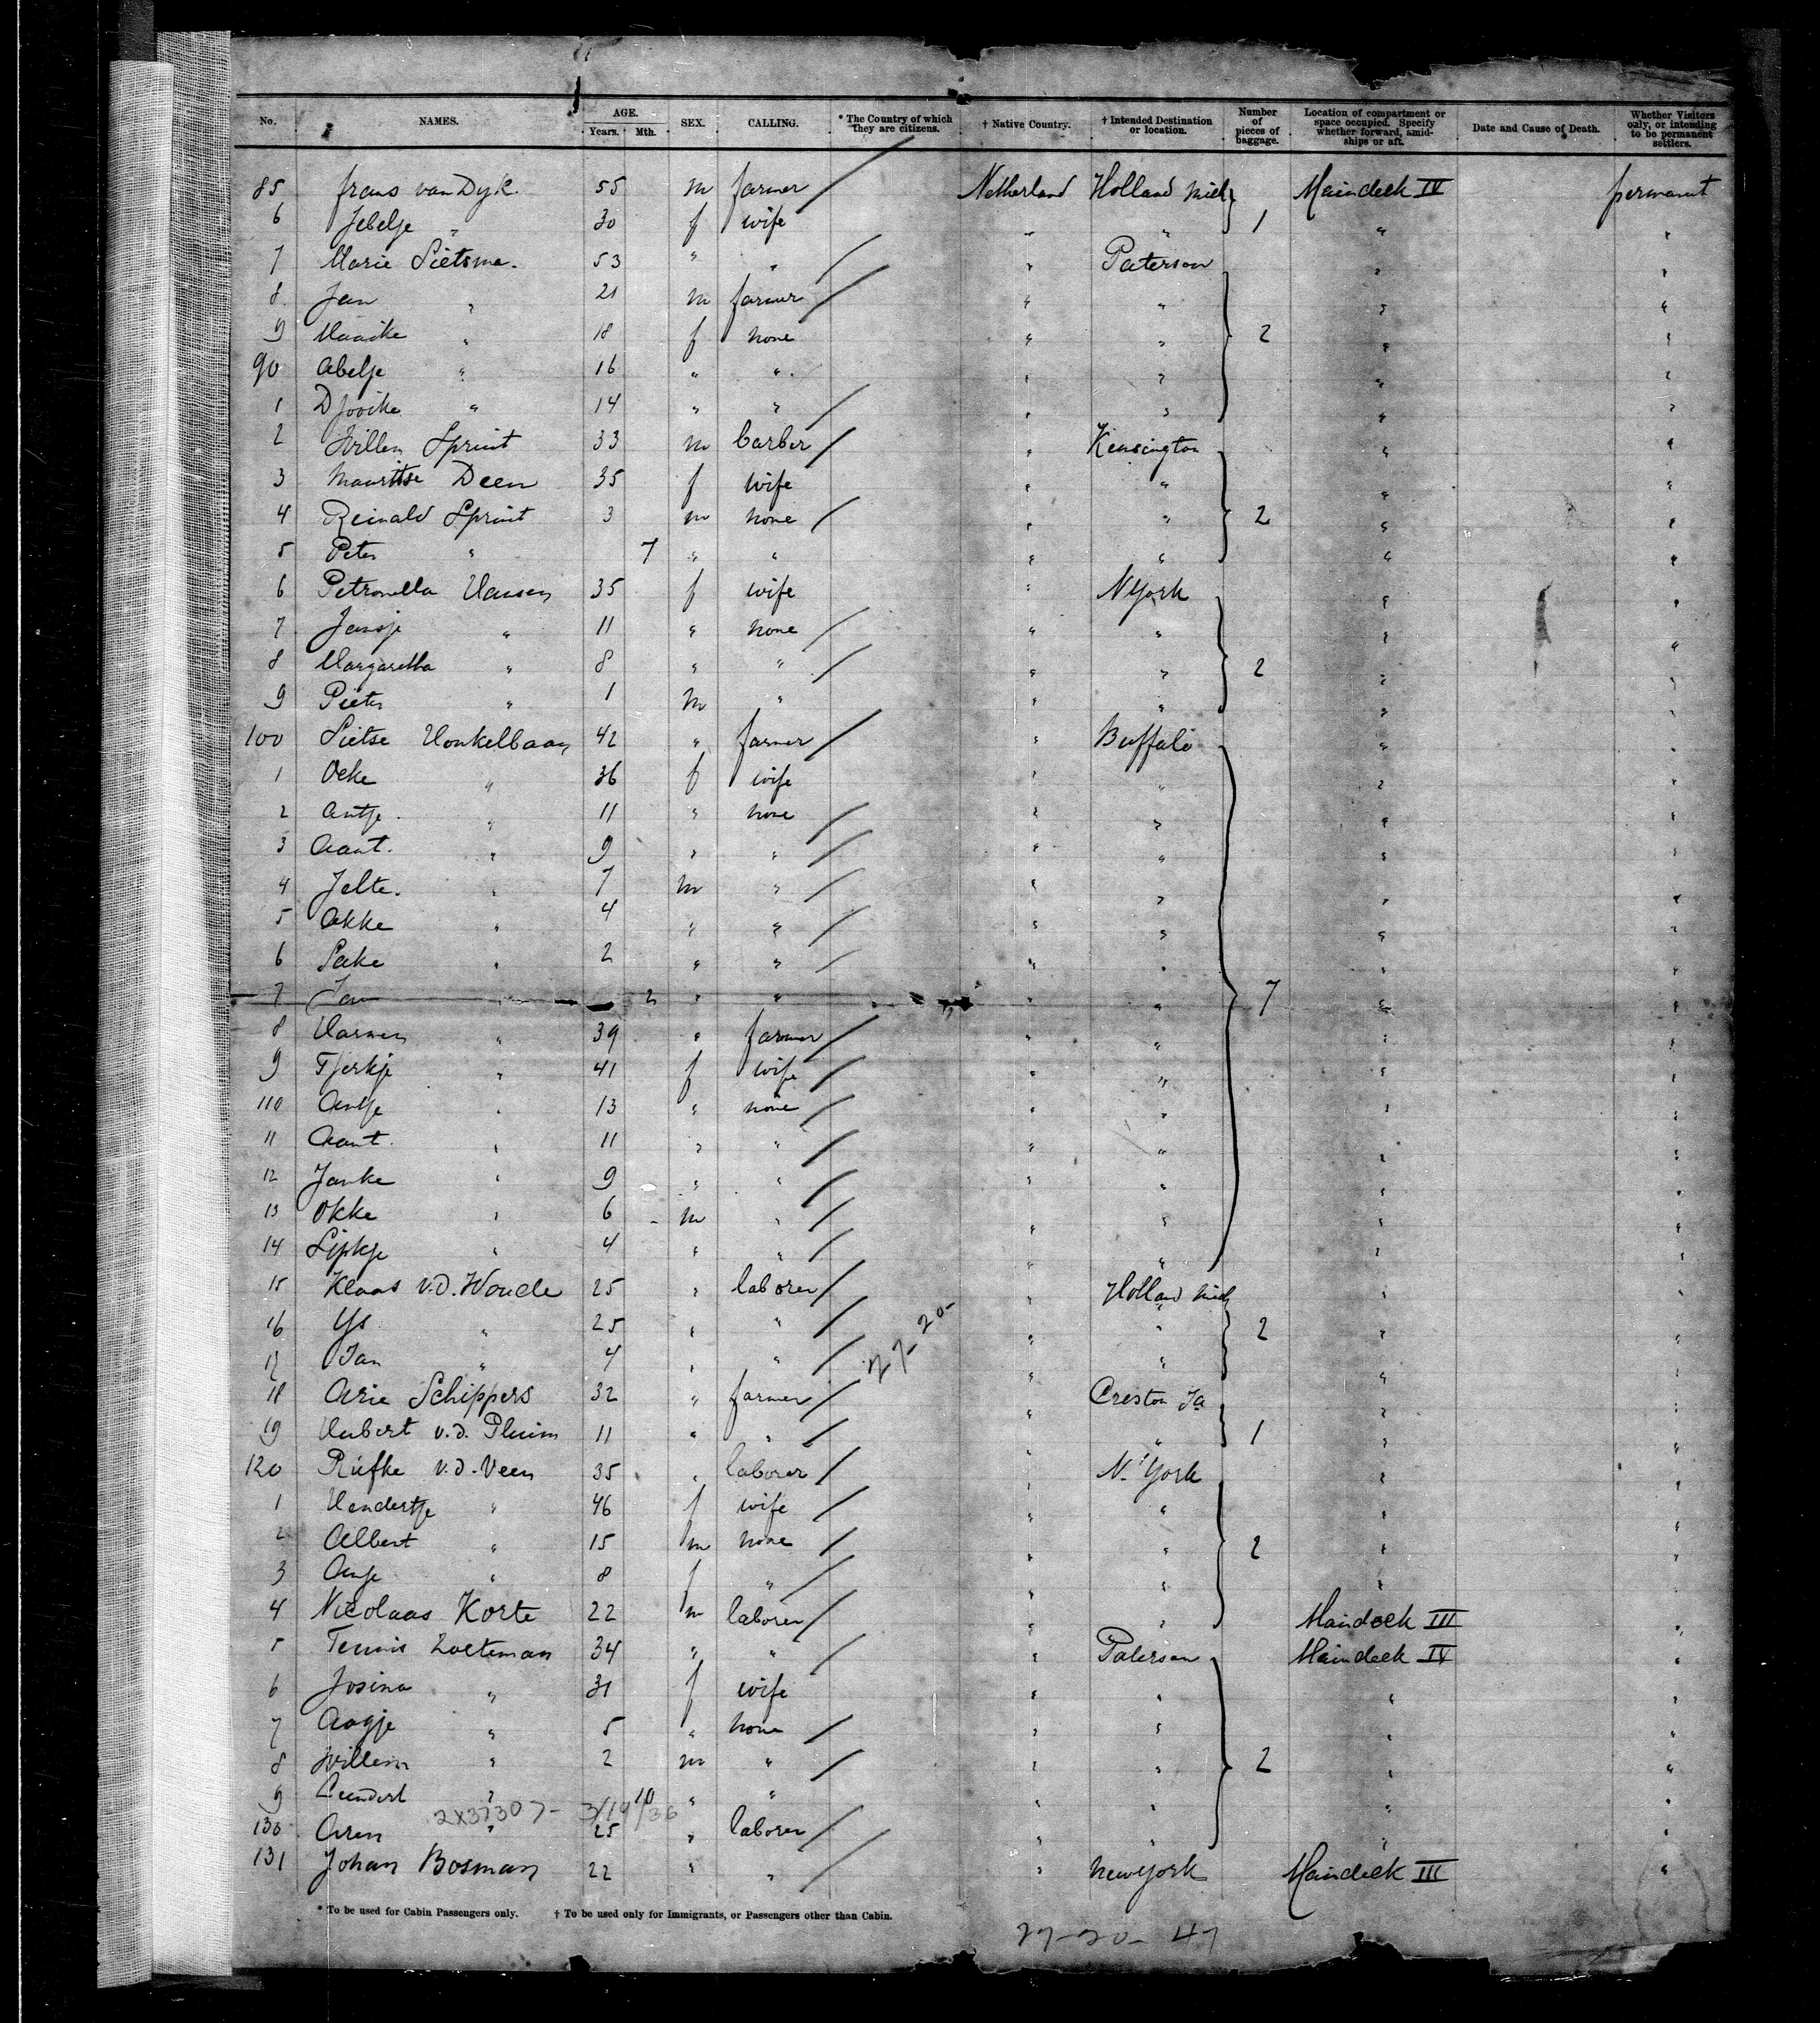 No. NAMES. AGE. Years. Mth. SEX. CALLING. * The Country of which they are citizens. † Native Country. † Intended Destination or location. Number of pieces of baggage. Location of compartment or space occupied. Specify whether forward, amidships or aft. Date and Cause of Death. Whether Visitors only, or intending to be permanent settlers.
85 frans van Dyk 55 m farmer Netherland Holland Mich Maindeck IV permanent
6 Jebelje " 30 f wife " " 1 " "
7 Marie Sietsma. 53 " " " Paterson " "
8 Jan " 21 m farmer " " " "
9 Maaike " 18 f none " " 2 " "
90 Abelje " 16 " " " " " "
1 " 14 " " " " " "
2 Willem Sprint 33 m barber " Kensington " "
3 Deen 35 f wife " " " "
4 Reinald Sprint 3 m none " " 2 " "
5 Peter " 7 " " " " " "
6 Petronella Hansen 35 f wife " NYork " "
7 Jansje " 11 " none " " " "
8 Margaretha " 8 " " " " 2 " "
9 Pieter " 1 m " " " " "
100 Sietse Honkelbaan 42 " farmer " Buffalo " "
1 Oeke " 36 f wife " " " "
2 Antje " 11 " none " " " "
3 Aant. " 9 " " " " " "
4 Jelte. " 7 m " " " " "
5 Akke " 4 " " " " " "
6 Sake " 2 " " " " " "
7 Jan " 2 " " " " 7 " "
8 Harmen " 39 " farmer " " " "
9 Tjerkje " 41 f wife " " " "
110 Antje " 13 " none " " " "
11 Aant. " 11 " " " " " "
12 Janke " 9 " " " " " "
13 Okke " 6 m " " " " "
14 Sipkje " 4 " " " " " "
15 Klaas v.d. Woude 25 " laborer " Holland Mich " "
16 Ys " 25 " " " " 2 " "
17 Jan " 4 " " " " " "
27-20-
18 Arie Schippers 32 " farmer " Creston Ia " "
19 Hubert v.d. Pluim 11 " " " " 1 " "
120 v.d. Veen 35 " laborer " N. York " "
1 Hendertje " 46 f wife " " " "
2 Albert " 15 m none " " 2 " "
3 Antje " 8 f " " " " "
4 Nicolaas Korte 22 m laborer " " Maindeck III "
5 Teunis Zoeteman 34 " " " Paterson Maindeck IV "
6 Josina " 31 f wife " " " "
7 Aagje " 5 " none " " " "
8 Willem " 2 m " " " 2 " "
9 Leendert " 10 " " " " " "
2X37307- 3/19/36
130 Aren " 25 " laborer " " " "
131 Johan Bosman 22 " " " New York Maindeck III "
* To be used for Cabin Passengers only. † To be used only for Immigrants, or Passengers other than Cabin.
27-20- 47